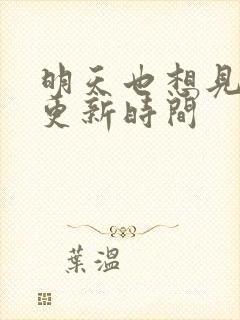 明天也想見
更新時間
葉溫